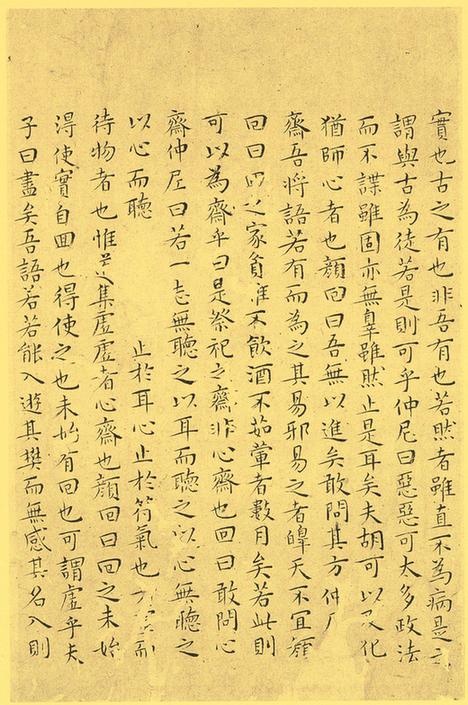 實也古之有也非吾有也若然者雖直不為病是
謂與古為徒若是則可乎仲尼曰惡惡可太多政法
而不諜雖固亦無辠雖然止是耳矣夫胡可以及化
猶師心者也顏回曰吾無以進矣敢問其方仲
齋吾將語若有而為之其易邪易之者皡天不宜顏
回曰回之家貧唯不飲酒不茹葷者數月矣若此則
可以為齋乎曰是祭祀之齋非心齋也回曰敢問心
齋仲尼曰若一志無聽之以耳而聽之以心無聽之
以心而聽 止於耳心止於符氣也 而
待物者也惟 集虛虛者心齋也顏回曰回之未始
得使實自回也得使之也未始有回也可謂虛乎夫
子曰盡矣吾語若若能入遊其樊而無感其名入則